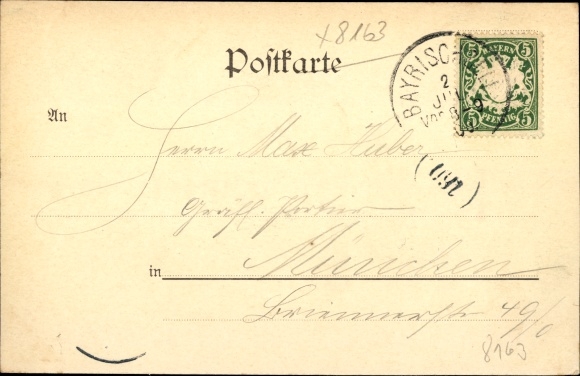 x8163
Postkarte
BAYRISCH
2
JUN
VOR
5 BAYERN 5
5 PFENNIG 5
An
Herrn Max Huber
Gräfl. Portier
in München
Briennerstr 49/0
8163